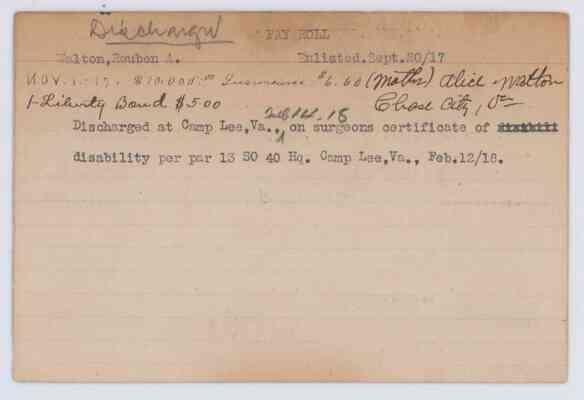 Discharged
PAY ROLL
Walton,Reuben A. Enlisted.Sept.20/17
Nov. 1-17. $10.000.00 Insurance $6.60 (Mother) Alice Walton
1-Liberty Bond $500 Chase City, Va
Feb 14.18
Discharged at Camp Lee,Va., on surgeons certificate of
disability per par 13 SO 40 Hq. Camp Lee,Va., Feb.12/18.